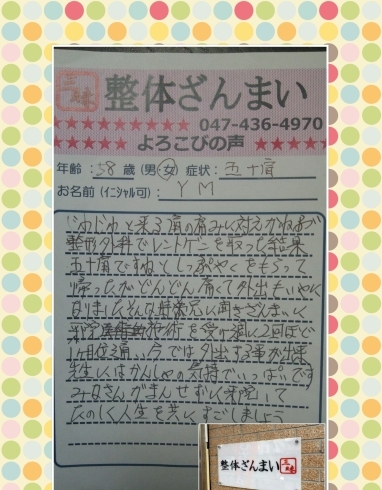 三昧 整体ざんまい
★★★★★★★★★ 047-436-4970
★★★★★ よろこびの声 ★★★★★
年齢:58歳(男・女) 症状:五十肩
お名前(イニシャル可) YM
じわじわと来る肩の痛みに耐えかねて
整形外科でレントゲンを取った結果
五十肩ですねとしっぷやくをもらって
帰ったがどんどん痛くて外出もいやに
なりましたそんな時 ざんまい
施術を受け 2回ほど
1ヶ月位 今では外出する事が出来
先生にはかんしゃの気持でいっぱいです
みなさんがまんせずに来院して
たのしく人生を共にすごしましょう
整体ざんまい 三昧